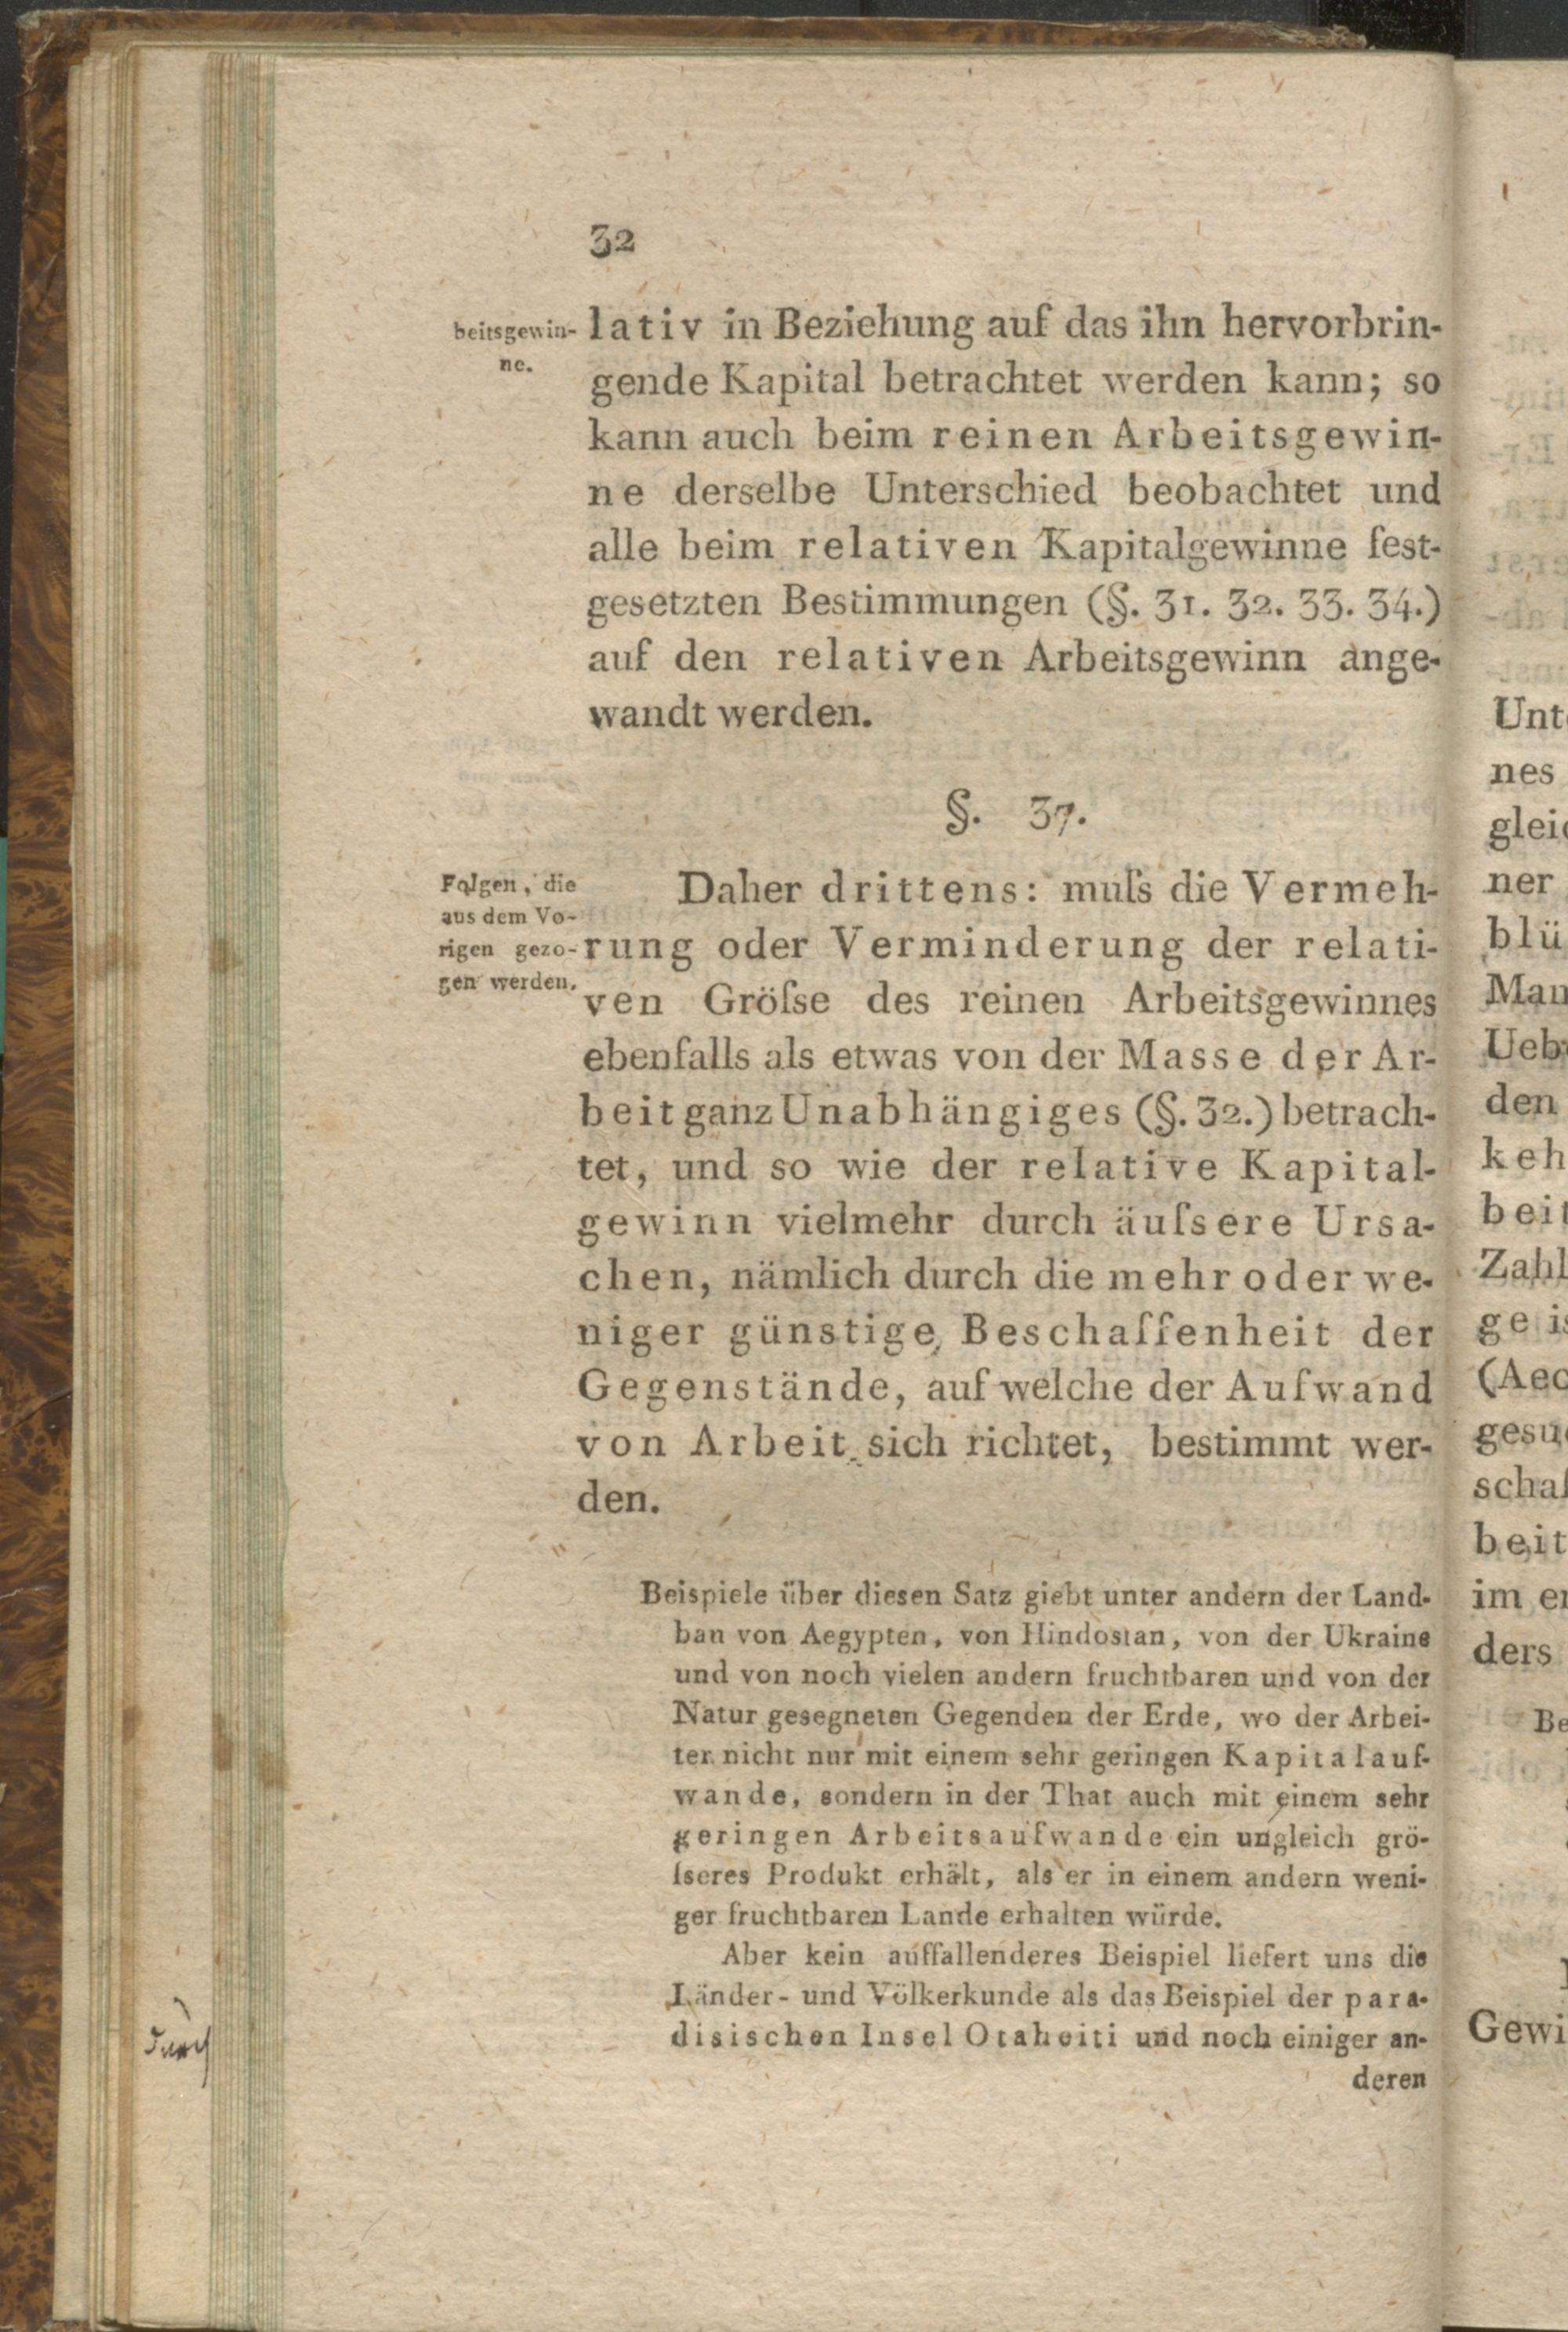 32
beitsgewin-
ne.
lativ in Beziehung auf das ihn hervorbrin-
gende Kapital betrachtet werden kann; so
kann auch beim reinen Arbeitsgewin-
ne derselbe Unterschied beobachtet und
alle beim relativen Kapitalgewinne fest-
gesetzten Bestimmungen (§. 31. 32. 33. 34.)
auf den relativen Arbeitsgewinn ange-
wandt werden.
§. 37.
Folgen, die
aus dem Vo-
rigen gezo-
gen werden.
Daher drittens: muſs die Vermeh-
rung oder Verminderung der relati-
ven Gröſse des reinen Arbeitsgewinnes
ebenfalls als etwas von der Masse der Ar-
beit ganz Unabhängiges (§. 32.) betrach-
tet, und so wie der relative Kapital-
gewinn vielmehr durch äuſsere Ursa-
chen, nämlich durch die mehr oder we-
niger günstige Beschaffenheit der
Gegenstände, auf welche der Aufwand
von Arbeit sich richtet, bestimmt wer-
den.
Beispiele über diesen Satz giebt unter andern der Land-
bau von Aegypten, von Hindostan, von der Ukraine
und von noch vielen andern fruchtbaren und von der
Natur gesegneten Gegenden der Erde, wo der Arbei-
ter nicht nur mit einem sehr geringen Kapitalauf-
wande, sondern in der That auch mit einem sehr
geringen Arbeitsaufwande ein ungleich grö-
ſseres Produkt erhält, als er in einem andern weni-
ger fruchtbaren Lande erhalten würde.
Aber kein auffallenderes Beispiel liefert uns die
Länder- und Völkerkunde als das Beispiel der para-
disischen Insel Otaheiti und noch einiger an-
deren
Unt
nes
glei
ner
blü
Man
Ueb
den
keh
beit
Zahl
ge is
(Aec
gesu
schaf
beit
im er
ders
Be
Gewi